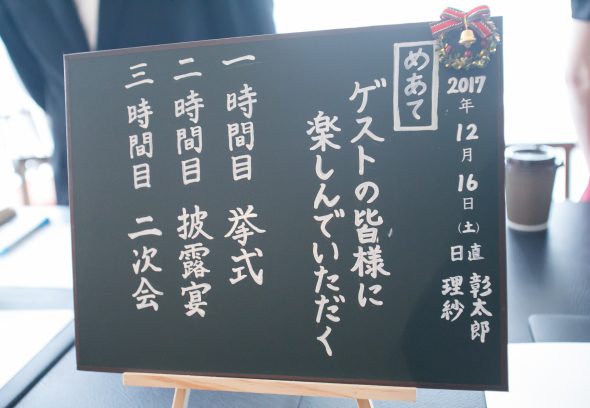 2017年12月16日(土)
日直 彰太郎 理紗
めあて
ゲストの皆様に
楽しんでいただく
一時間目 挙式
二時間目 披露宴
三時間目 二次会